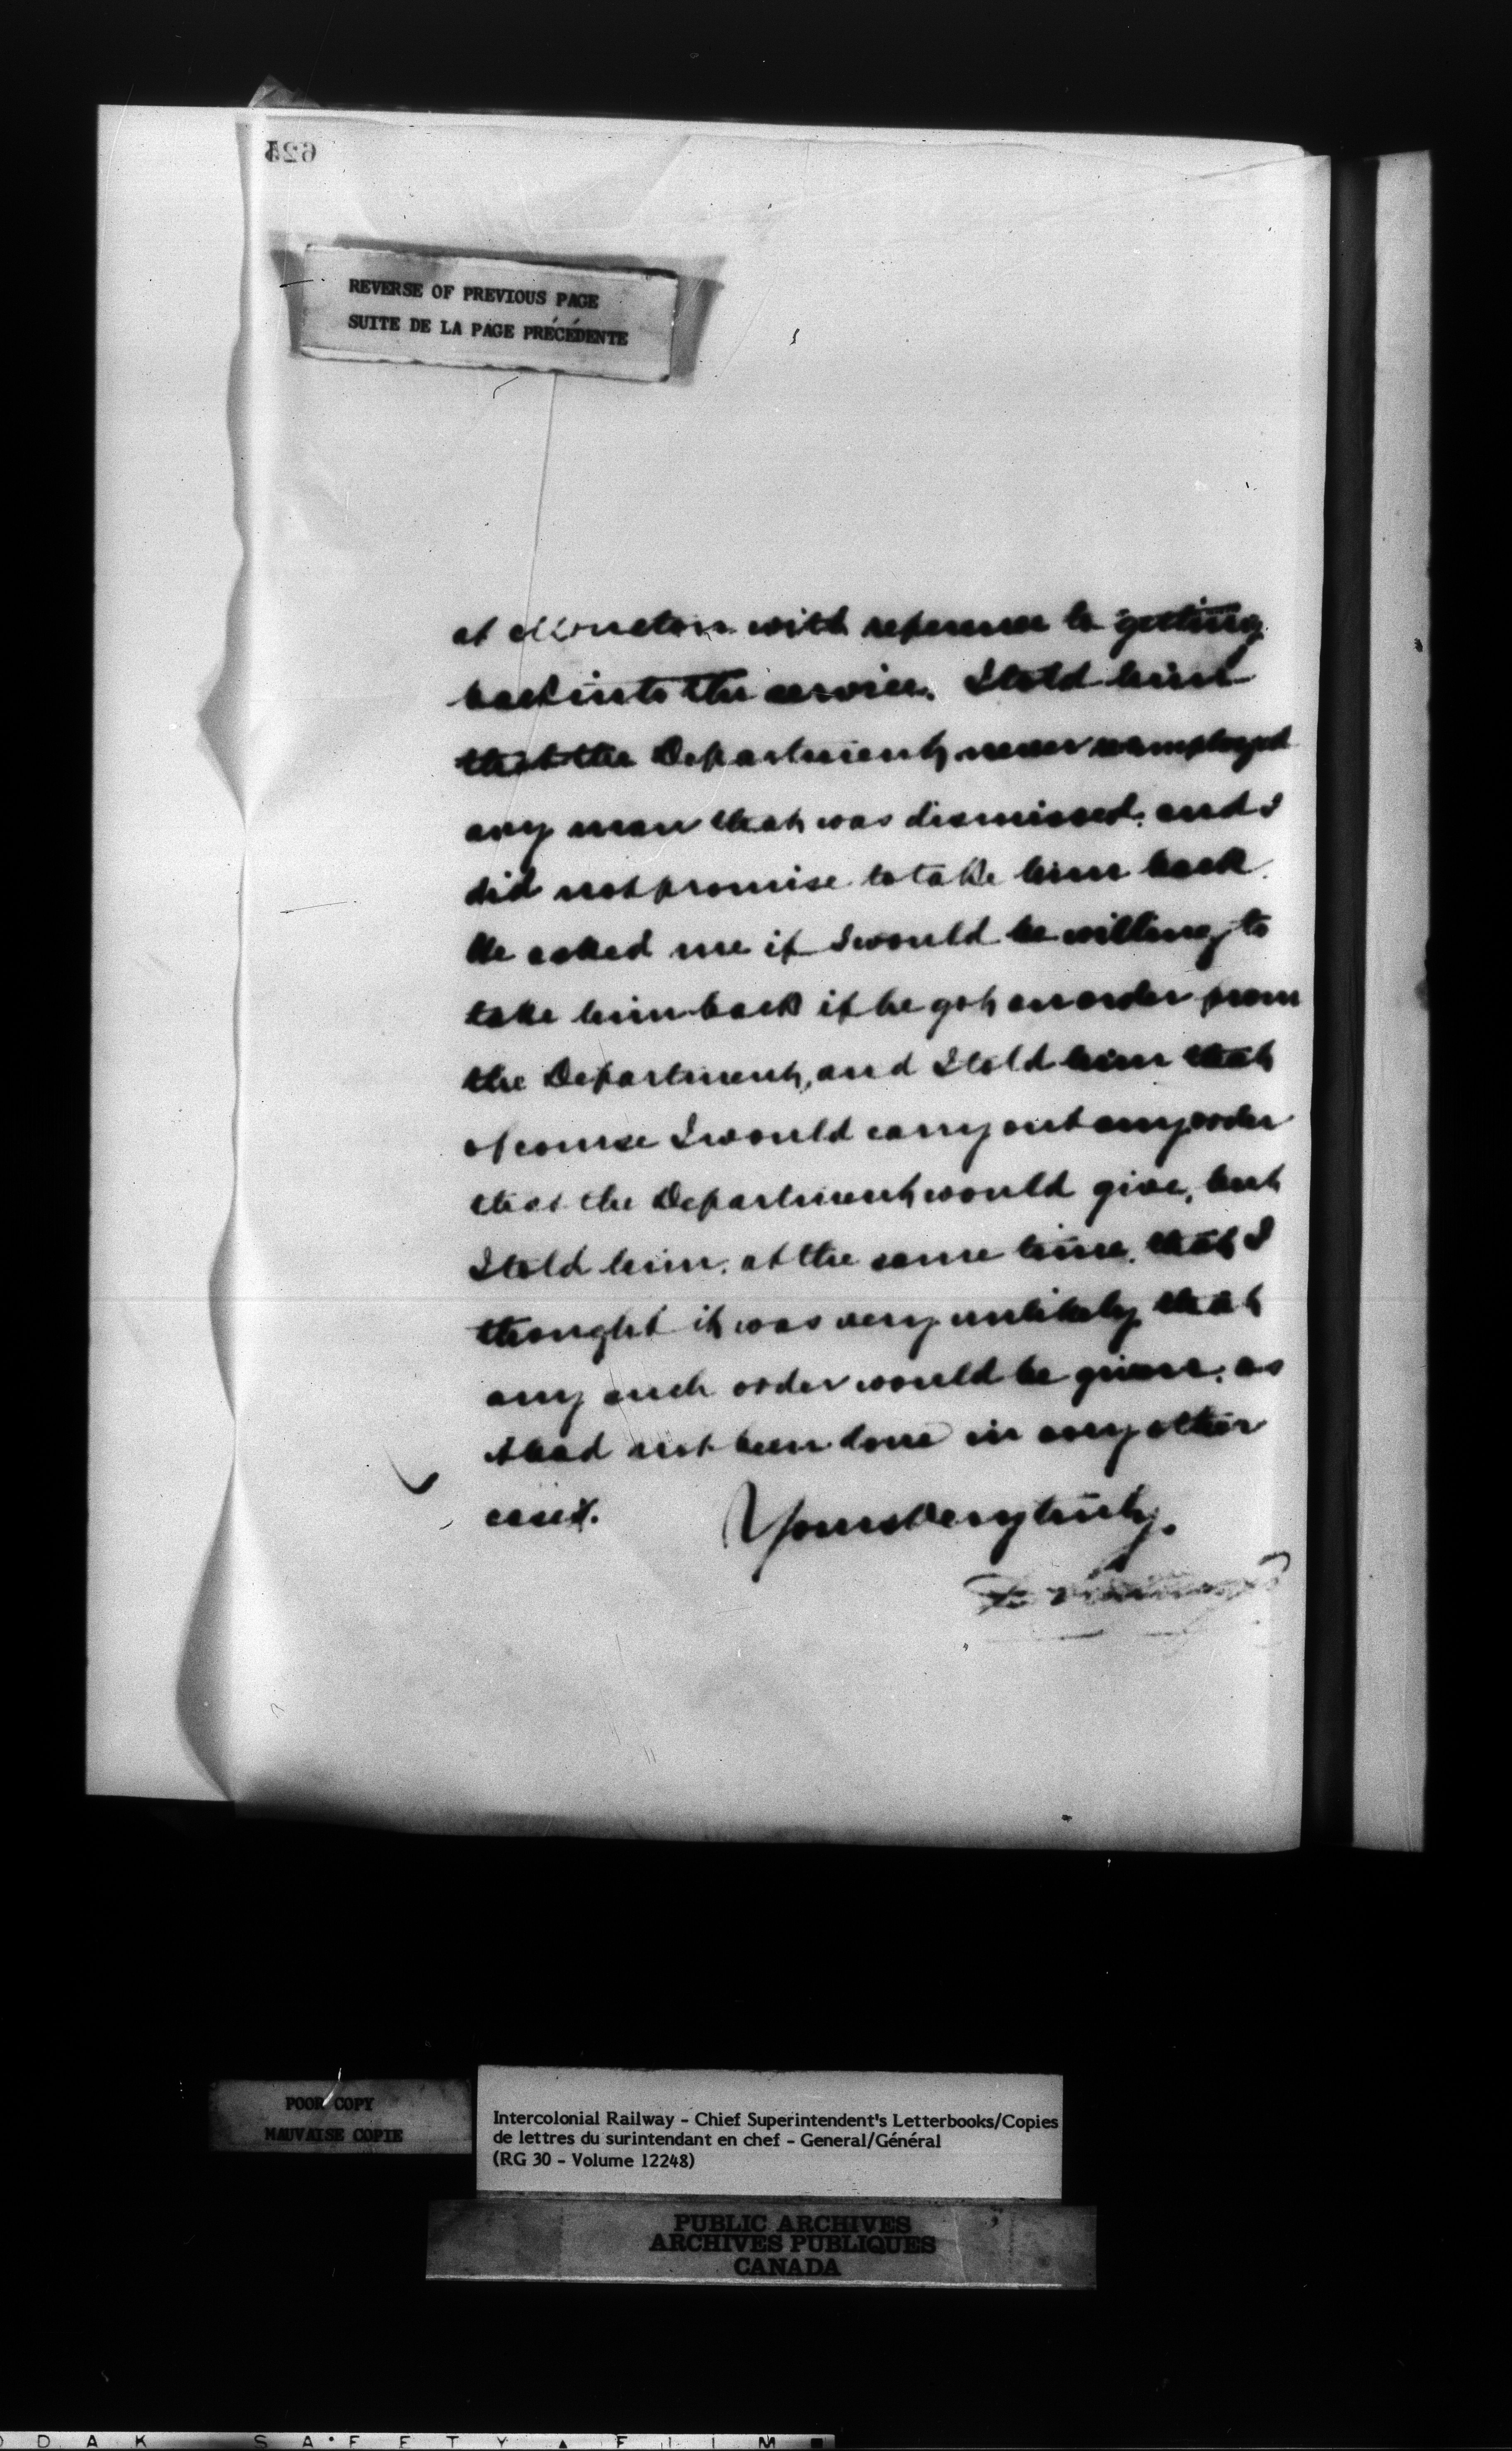 624
REVERSE OF PREVIOUS PAGE
SUITE DE LA PAGE PRÉCÉDENTE
at Moncton with reference to getting
back into the service. I told him
that the Department never reemployed
any man that was dismissed, and I
did not promise to take him back.
He asked me if I would be willing to
take him back if he got an order from
the Department, and I told him that
of course I would carry out any order
that the Department would give, but
I told him, at the same time, that I
thought it was very unlikely that
any such order would be given, as
it had not been done in any other
case.
Yours very truly,
POOR COPY
MAUVAISE COPIE
Intercolonial Railway - Chief Superintendent's Letterbooks/Copies
de lettres du surintendant en chef - General/Général
(RG 30 - Volume 12248)
PUBLIC ARCHIVES
ARCHIVES PUBLIQUES
CANADA
D A K SAFETY FILM